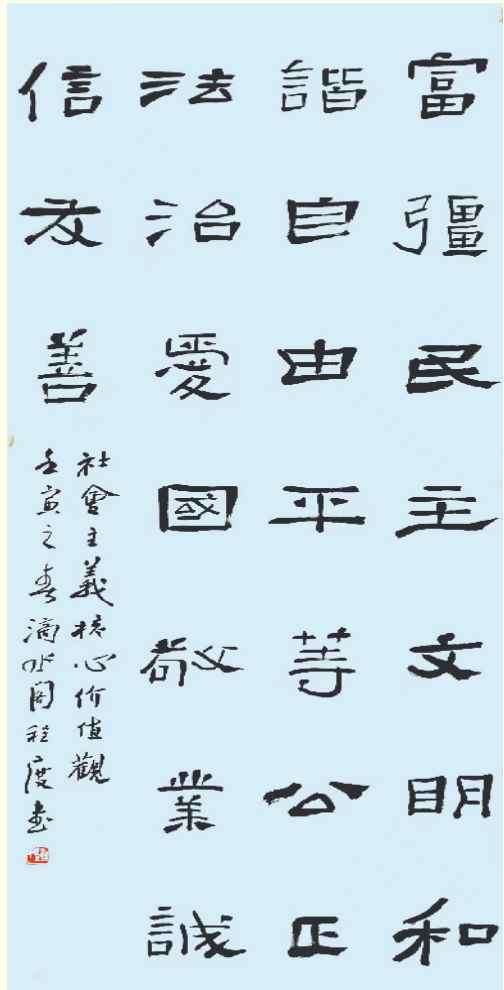 富彊民主文明和
諧自由平等公正
法治愛國敬業誠
信友善
社會主義核心价值觀
壬寅之春滴水閣程度书